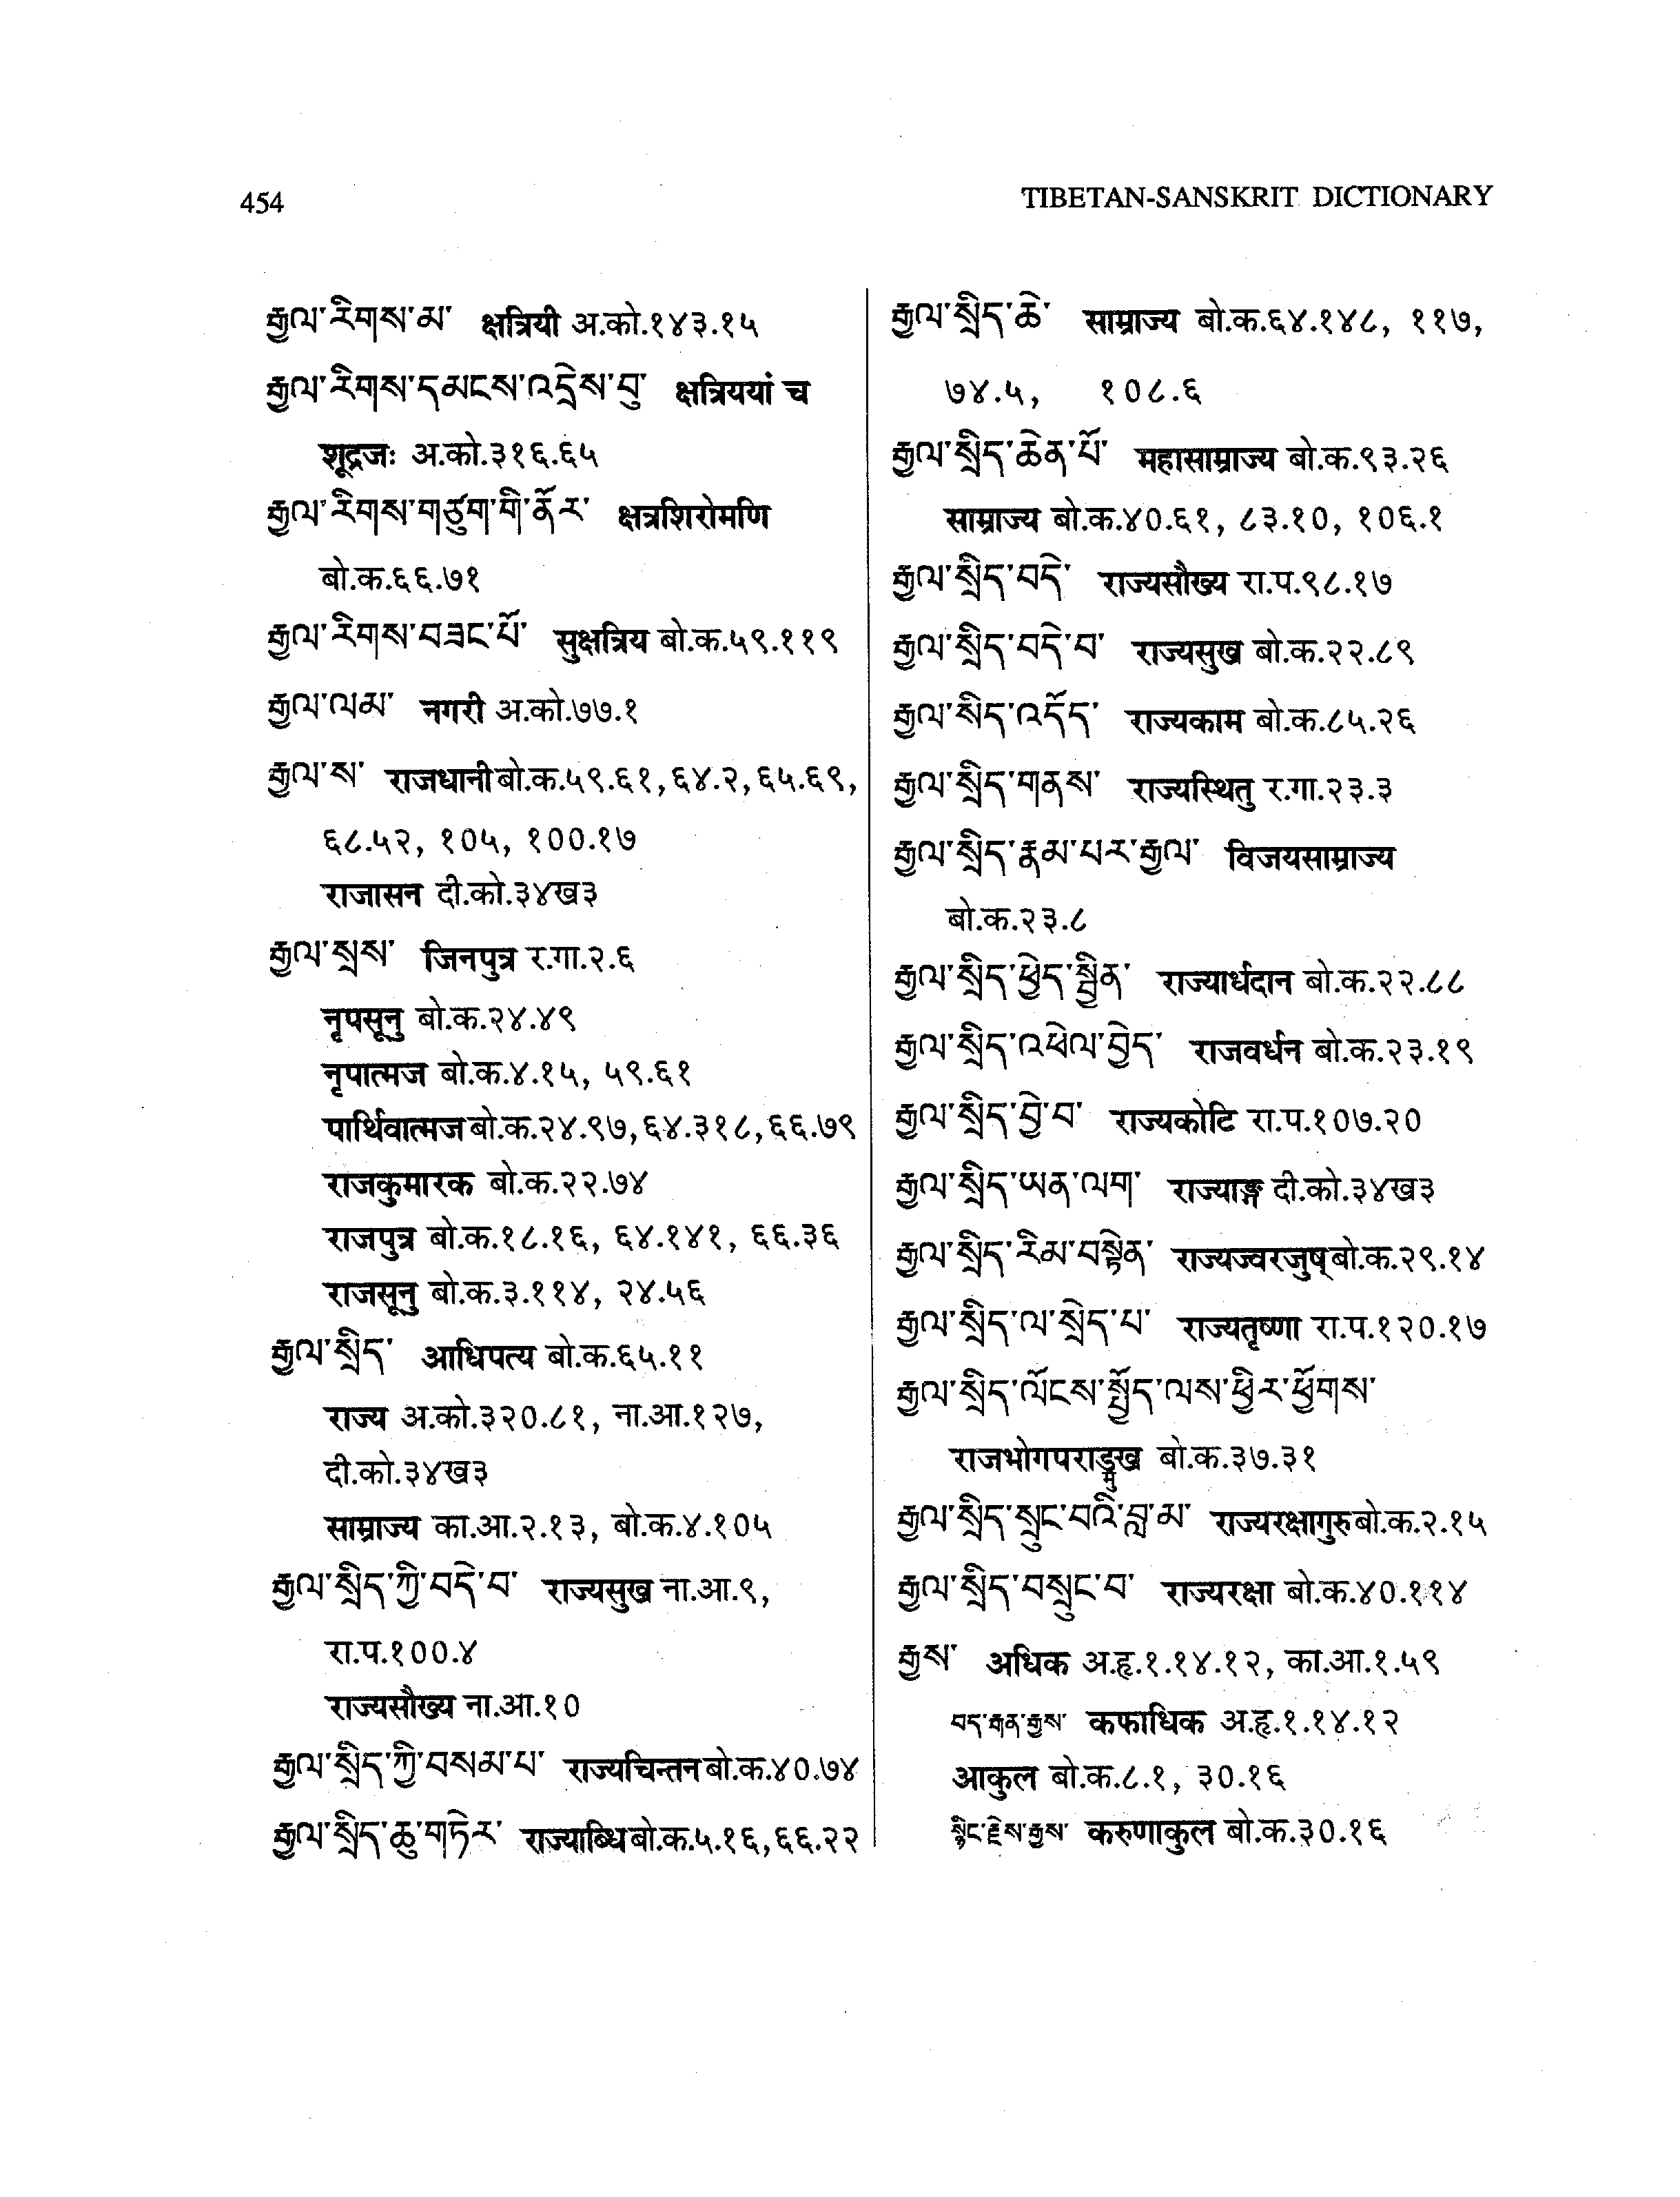 454
TIBETAN-SANSKRIT DICTIONARY
རྒྱལ་རིགས་མ་ क्षत्रियी अ.को.१४३.१५
རྒྱལ་རིགས་དམངས་འདྲེས་བུ་ क्षत्रिययां च
शूद्रजः अ.को.३१६.६५
རྒྱལ་རིགས་གཙུག་གི་ནོར་ क्षत्रशिरोमणि
बो.क.६६.७१
རྒྱལ་རིགས་བཟང་པོ་ सुक्षत्रिय बो.क.५९.११९
རྒྱལ་ལམ་ नगरी अ.को.७७.१
རྒྱལ་ས་ राजधानी बो.क.५९.६१, ६४.२, ६५.६९,
६८.५२, १०५, १००.१७
राजासन दी.को.३४ख३
རྒྱལ་སྲས་ जिनपुत्र र.गा.२.६
नृपसूनु बो.क.२४.४९
नृपात्मज बो.क.४.१५, ५९.६१
पार्थिवात्मज बो.क.२४.९७, ६४.३१८, ६६.७९
राजकुमारक बो.क.२२.७४
राजपुत्र बो.क.१८.१६, ६४.१४१, ६६.३६
राजसूनु बो.क.३.११४, २४.५६
རྒྱལ་སྲིད་ आधिपत्य बो.क.६५.११
राज्य अ.को.३२०.८१, ना.आ.१२७,
दी.को.३४ख३
साम्राज्य का.आ.२.१३, बो.क.४.१०५
རྒྱལ་སྲིད་ཀྱི་བདེ་བ་ राज्यसुख ना.आ.९,
रा.प.१००.४
राज्यसौख्य ना.आ.१०
རྒྱལ་སྲིད་ཀྱི་བསམ་པ་ राज्यचिन्तन बो.क.४०.७४
རྒྱལ་སྲིད་ཆུ་གཏེར་ राज्याब्धि बो.क.५.१६, ६६.२२
རྒྱལ་སྲིད་ཆེ་ साम्राज्य बो.क.६४.१४८, ११७,
७४.५, १०८.६
རྒྱལ་སྲིད་ཆེན་པོ་ महासाम्राज्य बो.क.९३.२६
साम्राज्य बो.क.४०.६१, ८३.१०, १०६.१
རྒྱལ་སྲིད་བདེ་ राज्यसौख्य रा.प.९८.१७
རྒྱལ་སྲིད་བདེ་བ་ राज्यसुख बो.क.२२.८९
རྒྱལ་སིད་འདོད་ राज्यकाम बो.क.८५.२६
རྒྱལ་སྲིད་གནས་ राज्यस्थितु र.गा.२३.३
རྒྱལ་སྲིད་རྣམ་པར་རྒྱལ་ विजयसाम्राज्य
बो.क.२३.८
རྒྱལ་སྲིད་ཕྱེད་སྦྱིན་ राज्यार्धदान बो.क.२२.८८
རྒྱལ་སྲིད་འཕེལ་བྱེད་ राजवर्धन बो.क.२३.१९
རྒྱལ་སྲིད་བྱེ་བ་ राज्यकोटि रा.प.१०७.२०
རྒྱལ་སྲིད་ཡན་ལག་ राज्याङ्ग दी.को.३४ख३
རྒྱལ་སྲིད་རིམ་བསྟེན་ राज्यज्वरजुष् बो.क.२९.१४
རྒྱལ་སྲིད་ལ་སྲེད་པ་ राज्यतृष्णा रा.प.१२०.१७
རྒྱལ་སྲིད་ལོངས་སྤྱོད་ལས་ཕྱིར་ཕྱོགས་
राजभोगपराङ्मुख बो.क.३७.३१
རྒྱལ་སྲིད་སྲུང་བའི་བླ་མ་ राज्यरक्षागुरु बो.क.२.१५
རྒྱལ་སྲིད་བསྲུང་བ་ राज्यरक्षा बो.क.४०.११४
རྒྱས་ अधिक अ.हृ.१.१४.१२, का.आ.१.५९
བད་གན་རྒྱས་ कफाधिक अ.हृ.१.१४.१२
आकुल बो.क.८.१, ३०.१६
སྙིང་རྗེས་རྒྱས་ करुणाकुल बो.क.३०.१६